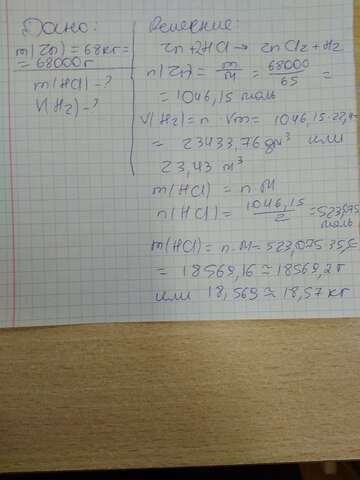 Дано:
m(Zn) = 68кг =
= 68000г
m(HCl) - ?
V(H2) - ?
Решение:
Zn + 2HCl → ZnCl2 + H2
n(Zn) = m/M = 68000/65 =
= 1046,15 моль
V(H2) = n · Vm = 1046,15 · 22,4
= 23433,76 дм³ или
23,43 м³
m(HCl) = n · M
n(HCl) = 1046,15/2 = 523,075
моль
m(HCl) = n · M = 523,075 · 35,5
= 18569,16 ≈ 18569,2 г
или 18,569 ≈ 18,57 кг